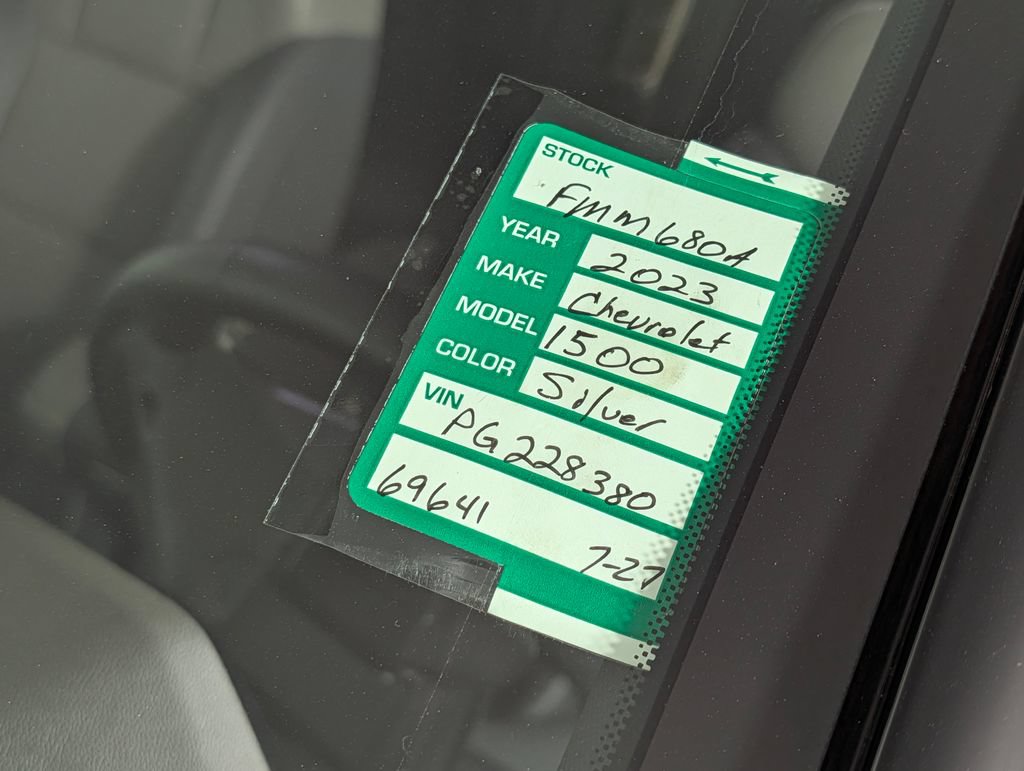 STOCK
FMM680A
YEAR 2023
MAKE Chevrolet
MODEL 1500
COLOR Silver
VIN PG228380
69641 7-27